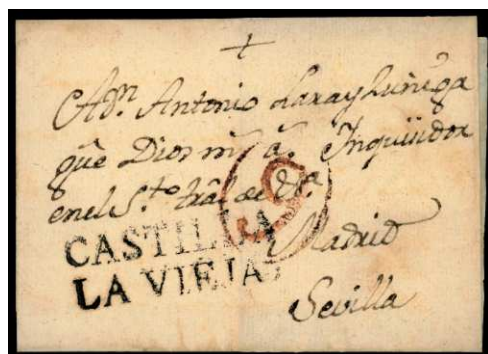 +
A Dn. Antonio Lara y Zuñiga
que Dios ms. as. Inquisidor
en el Sto. tral de
CASTILLA
LA VIEJA
Madrid
Sevilla